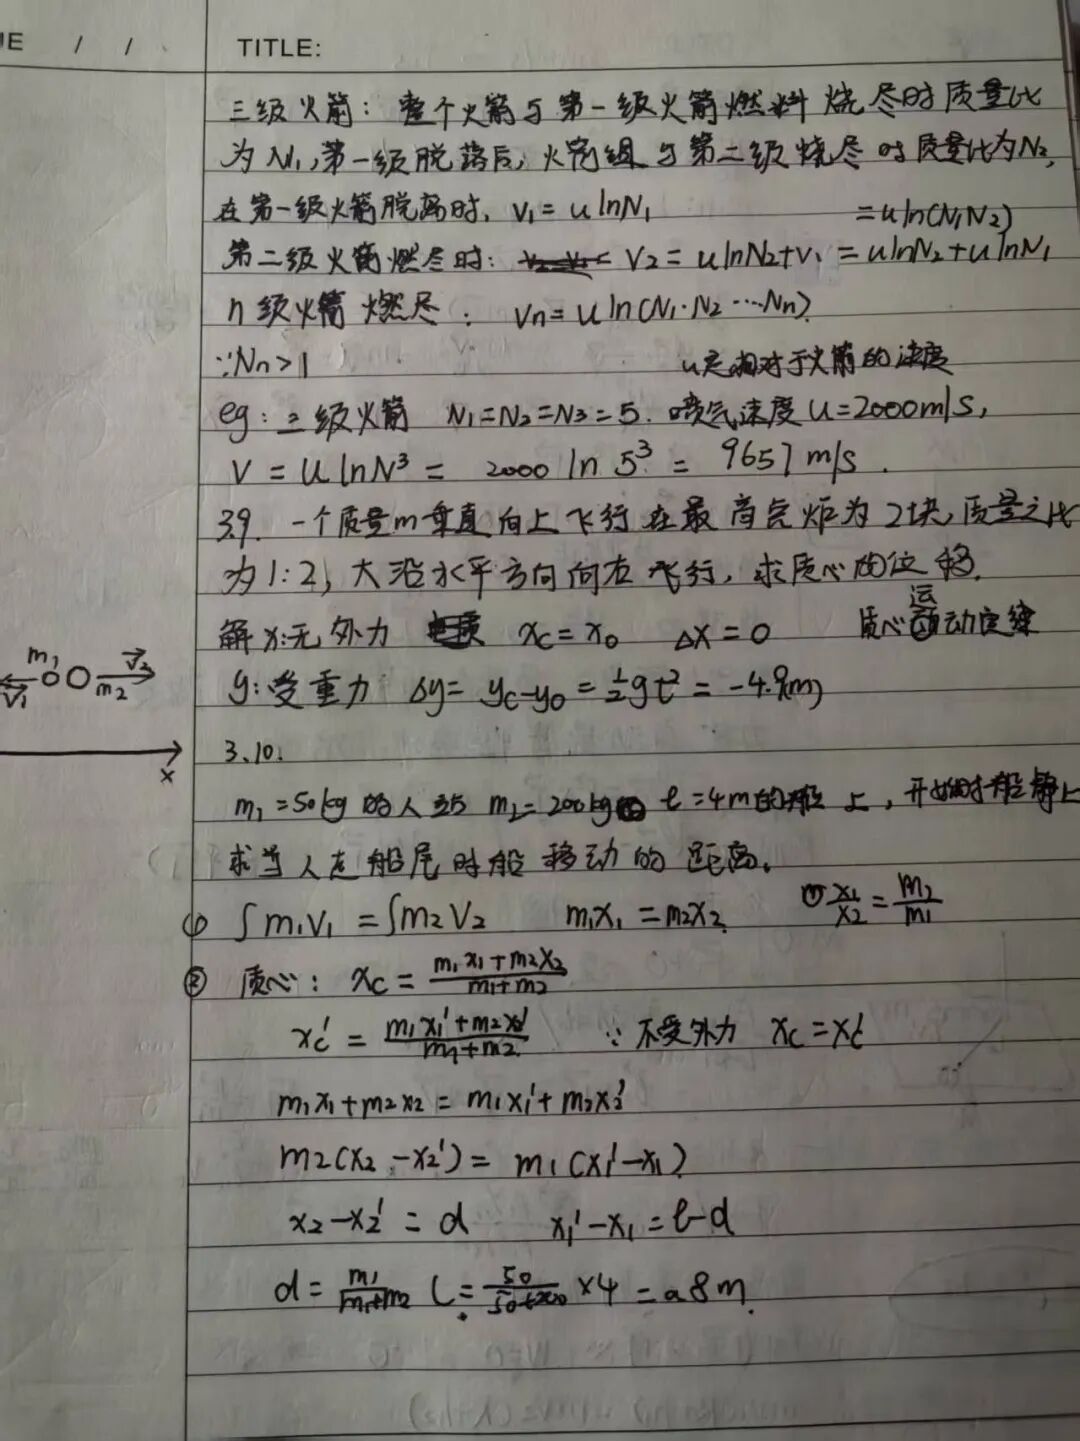 UE / /
TITLE:
三级火箭：整个火箭与第一级火箭燃料烧尽时质量比
为N₁,第一级脱落后,火箭组与第二级烧尽时质量比为N₂,
在第一级火箭脱离时, v₁=u lnN₁ =u ln(N₁N₂)
第二级火箭燃尽时: V₂=u lnN₂+v₁=u lnN₂+u lnN₁
n级火箭燃尽: Vn=u ln(N₁·N₂…Nn)
∵Nn>1 u是相对于火箭的速度
eg:三级火箭 N₁=N₂=N₃=5. 喷气速度u=2000m/s,
V=u lnN³=2000 ln 5³=9657 m/s.
3.9. 一个质量m垂直向上飞行在最高点炸为2块,质量之比
为1:2,大沿水平方向向右飞行,求质心的位移.
解 x:无外力 xc=x₀ Δx=0 质心运动定律
m₁ v⃗₂
v⃗₁ m₂
y:受重力 Δy=yc-y₀=½gt²=-4.9(m)
3.10.
x
m₁=50kg的人站 m₂=200kg l=4m的船上,开始时船静止
求当人走船尾时船移动的距离.
① ∫m₁v₁=∫m₂v₂ m₁x₁=m₂x₂ ① x₁/x₂=m₂/m₁
② 质心: xc=(m₁x₁+m₂x₂)/(m₁+m₂)
xc'=(m₁x₁'+m₂x₂')/(m₁+m₂) ∵不受外力 xc=xc'
m₁x₁+m₂x₂=m₁x₁'+m₂x₂'
m₂(x₂-x₂')=m₁(x₁'-x₁)
x₂-x₂'=d x₁'-x₁=l-d
d=m₁/(m₁+m₂) L=50/(50+200)×4=0.8m.